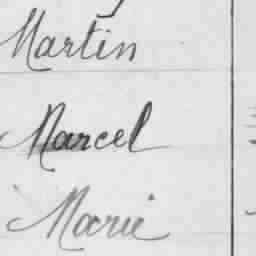 Martin
Marcel
Marie